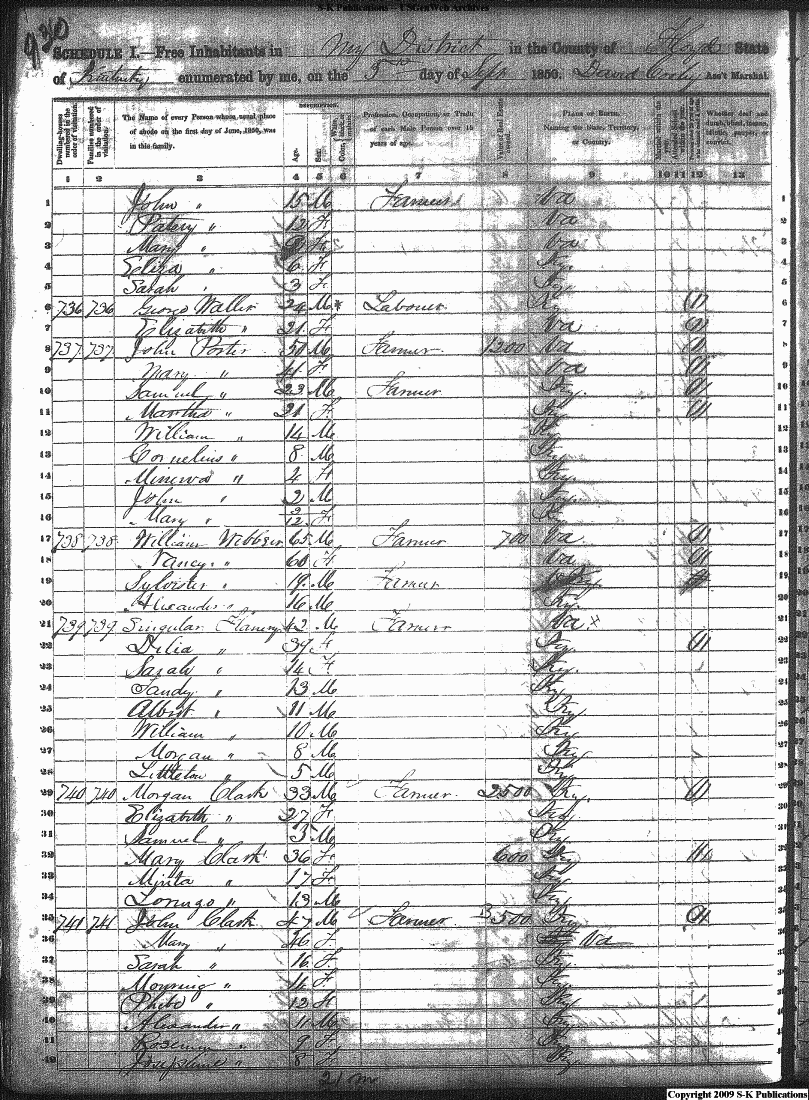 S-K Publications - USGenWeb Archives
930
SCHEDULE I.—Free Inhabitants in My District in the County of Floyd State
of Kentucky enumerated by me, on the 3rd day of Sept 1850. David Ass't Marshal.
Dwelling-houses numbered in the order of visitation. Families numbered in the order of visitation. The Name of every Person whose usual place of abode on the first day of June, 1850, was in this family. DESCRIPTION. Age. Sex. Color, Profession, Occupation, or Trade of each Male Person over 15 years of age. Value of Real Estate owned. PLACE OF BIRTH. Naming the State, Territory, or Country. Whether deaf and dumb, blind, insane, idiotic, pauper, or convict.
1 2 3 4 5 6 7 8 9 10 11 12 13
1 John " 15 M Farmer Va 1
2 " 12 F Va
3 Mary " F Va
4 Eliza " 6 F Ky
5 Sarah " 3 F Ky
6 736 736 George Waller 24 M Labourer Ky 1
7 Elizabeth " 21 F Va 1
8 737 737 John Porter 51 M Farmer 1200 Va 1
9 Mary " 41 F Va 1
10 Samuel " 23 M Farmer Ky 1
11 Martha " 21 F Ky 1
12 William " 14 M Ky
13 Cornelius " 8 M Ky
14 Minerva " 4 F Ky
15 John " 2 M Ky
16 Mary " 3/12 F Ky
17 738 738 William Webber 65 M Farmer 700 Va 1
18 Nancy " 60 F Va 1
19 Sylvester " 19 M Farmer
20 Alexander " 16 M Ky
21 739 739 Singular Flanery 42 M Farmer Va x
22 Dilia " 39 F Ky 1
23 Sarah " 14 F Ky
24 Sandy " 13 M Ky
25 Albert " 11 M Ky
26 William " 10 M Ky
27 Morgan " 8 M Ky
28 Littleton " 5 M Ky
29 740 740 Morgan Clark 33 M Farmer 2500 Ky 1
30 Elizabeth " 27 F Ky
31 Samuel " 3 M Ky
32 Mary Clark 36 F 600 Ky 1
33 Minta " 17 F Ky
34 " 13 M Ky
35 741 741 John Clark 47 M Farmer 3500 Ky 1
36 Mary " 46 F Va
37 Sarah " 16 F Ky
38 " 14 F Ky
39 Phebe " 12 F Ky
40 Alexander " 11 M Ky
41 " 9 F Ky
42 Josephine " 8 F Ky
21 m
Copyright 2009 S-K Publications